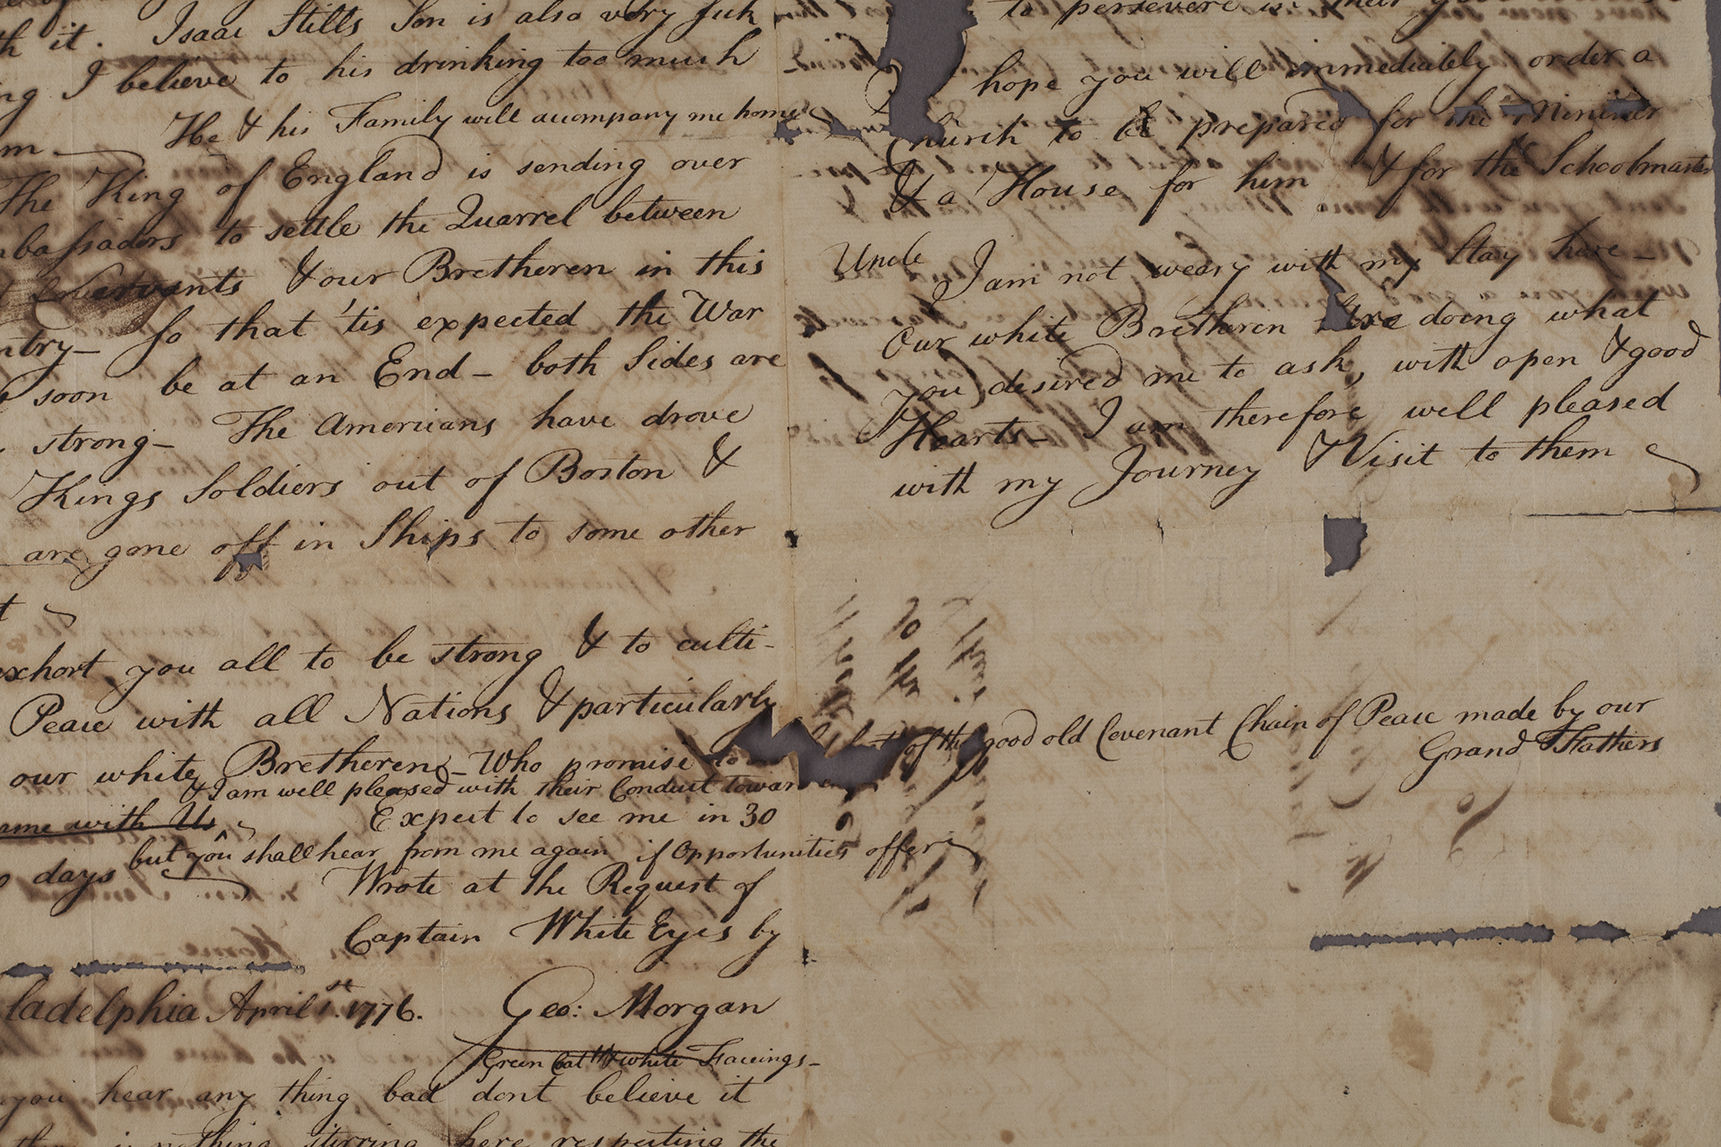 it. Isaac Stills Son is also very sick
ng I believe to his drinking too much
m — He & his Family will accompany me home
The King of England is sending over
mbassadors to settle the Quarrel between
Servants & our Bretheren in this
ntry — So that 'tis expected the War
soon be at an End — both Sides are
strong — The Americans have drove
Kings Soldiers out of Boston &
are gone off in Ships to some other
t
exhort you all to be strong & to culti-
Peace with all Nations & particularly
our white Bretheren — Who promise to
& I am well pleased with their Conduct toward
ame with Us Expect to see me in 30
days but you shall hear from me again if Opportunities offer
Wrote at the Request of
Captain White Eyes by
ladelphia April 1st. 1776. Geo: Morgan
Green Coat & white Facings —
you hear any thing bad dont believe it
is nothing stirring here respecting the
to persevere in their
hope you will immediately order a
Church to be prepared for the Minister
& a House for him & for the Schoolmaster
Uncle
I am not weary with my Stay here —
Our white Bretheren are doing what
you desired me to ask, with open & good
Hearts — I am therefore well pleased
with my Journey & Visit to them
of the good old Covenant Chain of Peace made by our
Grand Fathers